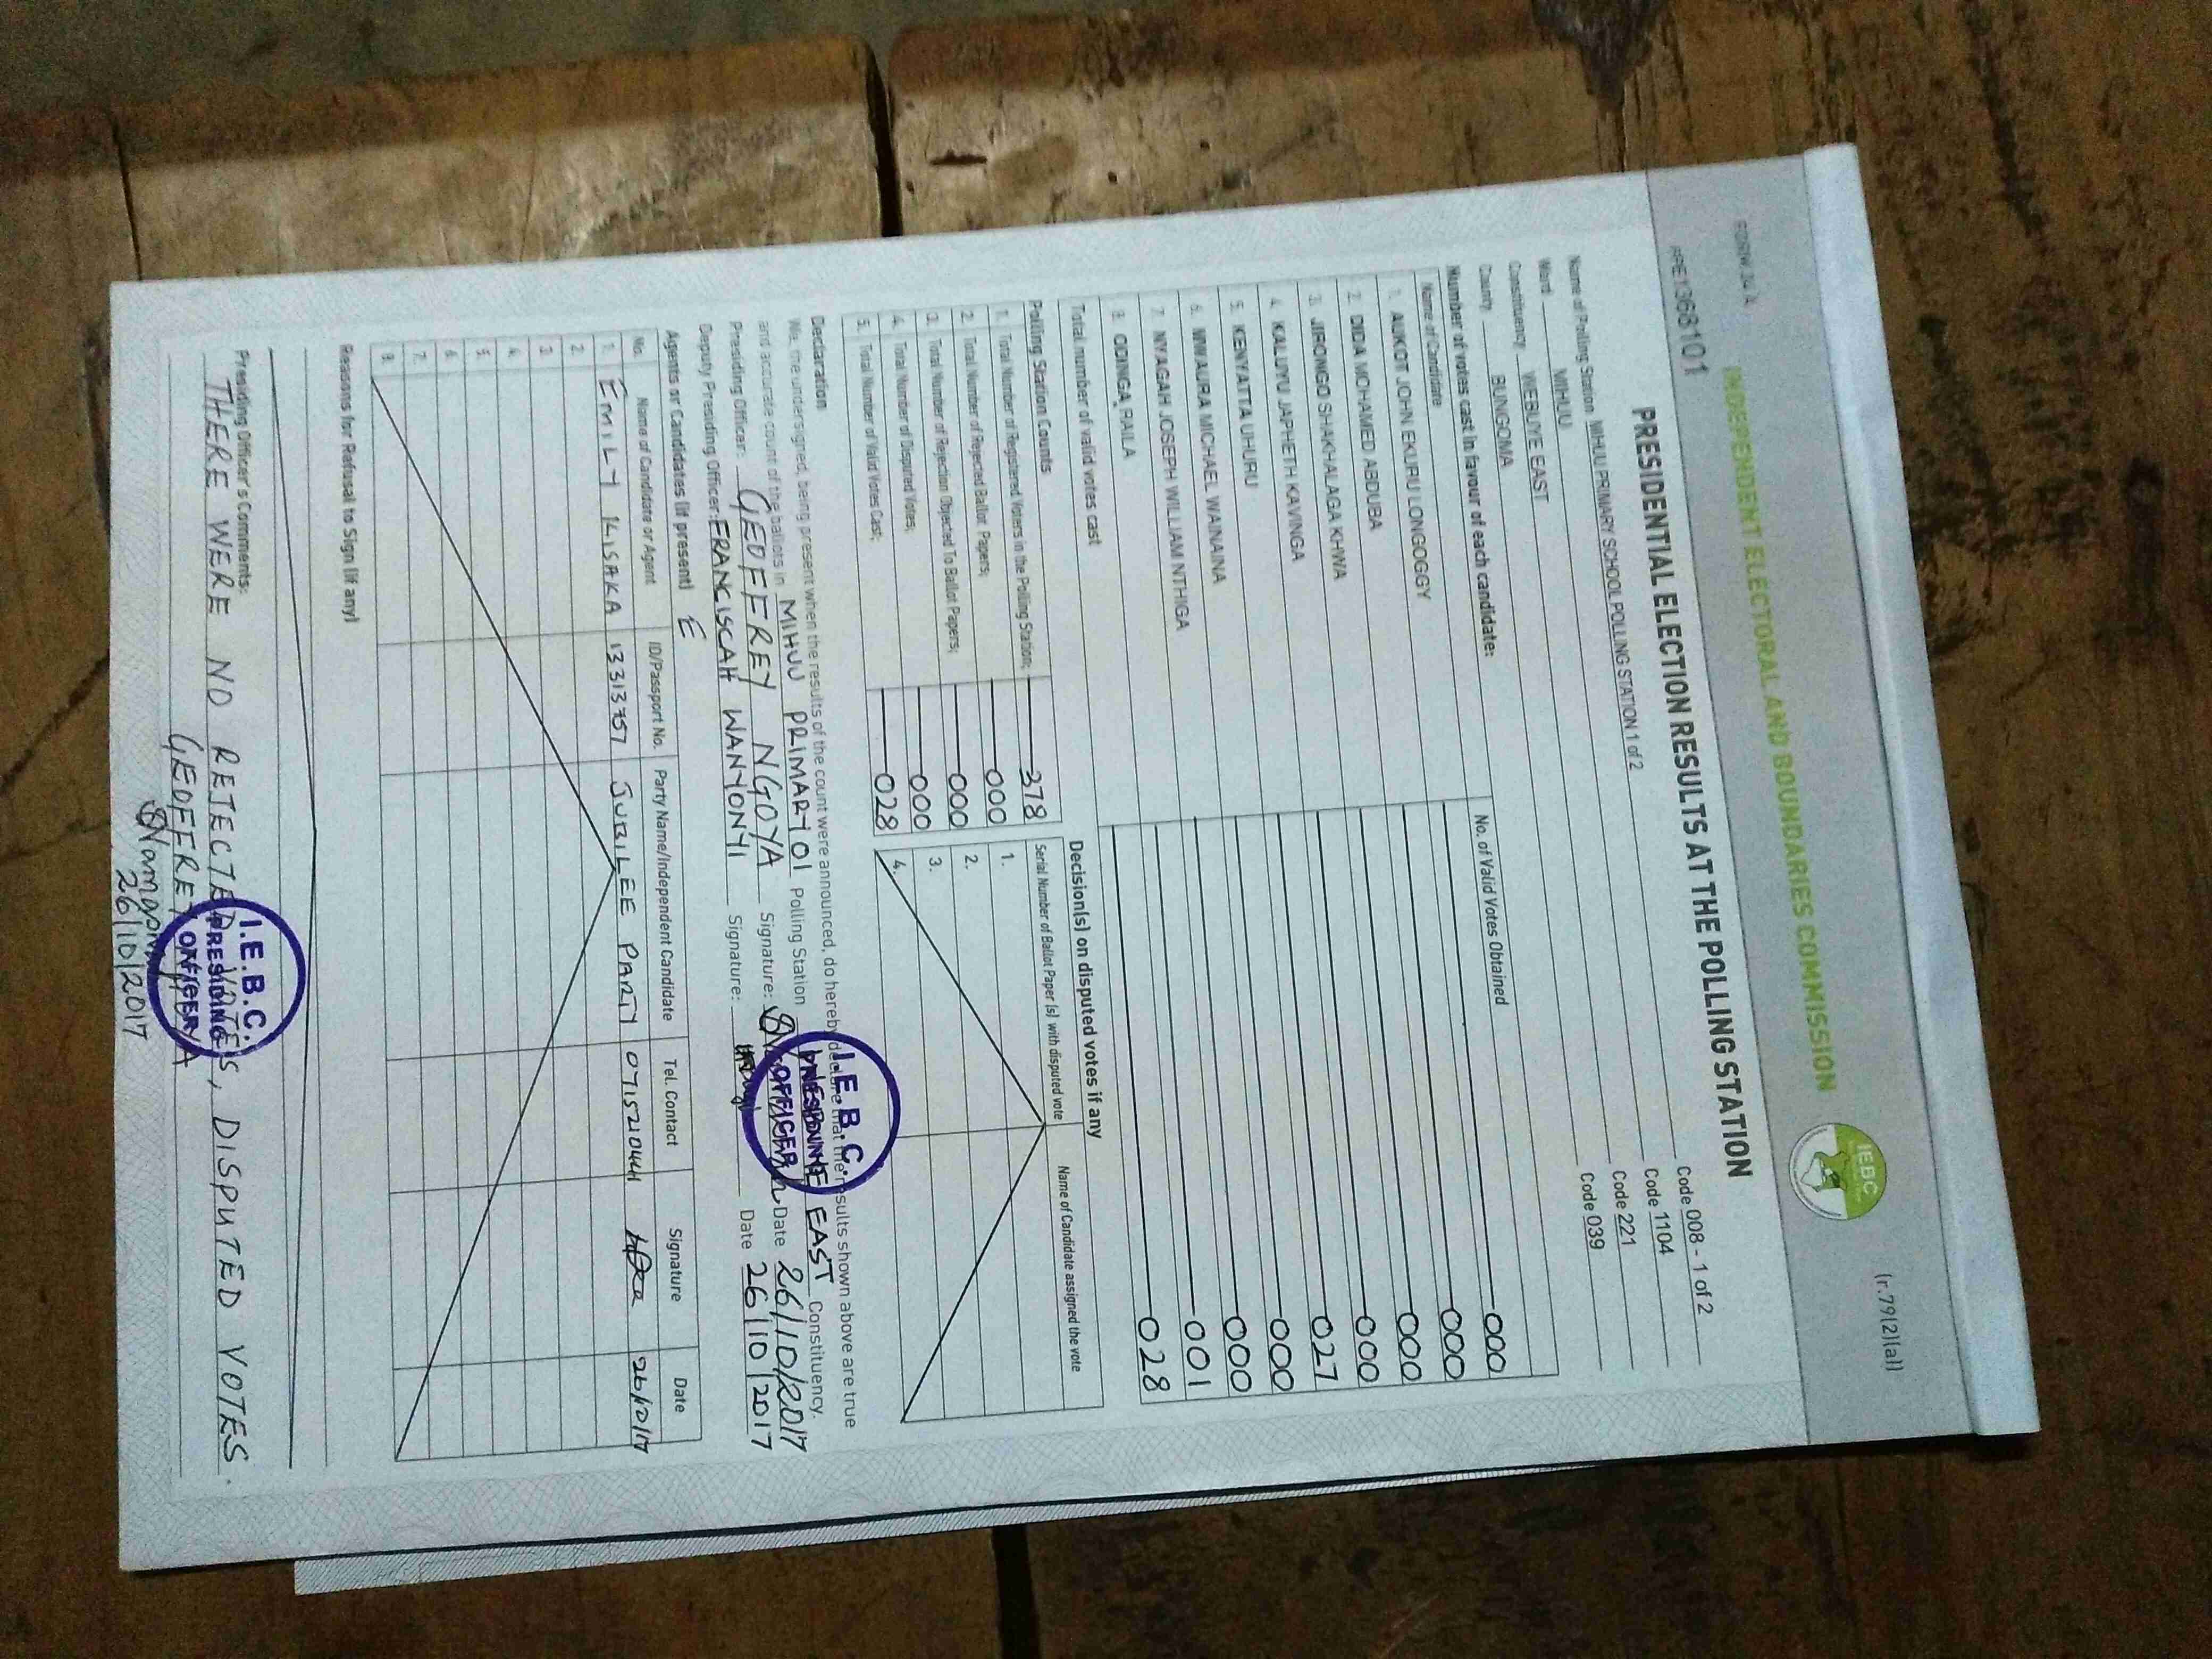 FORM 34 A
(r.79(2)(a))
INDEPENDENT ELECTORAL AND BOUNDARIES COMMISSION
IEBC
PRESIDENTIAL ELECTION RESULTS AT THE POLLING STATION
Name of Polling Station MIHUU PRIMARY SCHOOL POLLING STATION 1 of 2 Code 008 - 1 of 2
Ward MIHUU Code 1104
Constituency WEBUYE EAST Code 221
County BUNGOMA Code 039
Number of votes cast in favour of each candidate:
Name of Candidate No. of Valid Votes Obtained
1. AUKOT JOHN EKURU LONGOGGY 000
2. DIDA MOHAMED ABDUBA 000
3. JIRONGO SHAKHALAGA KHWA 000
4. KALUYU JAPHETH KAVINGA 000
5. KENYATTA UHURU 027
6. MWAURA MICHAEL WAINAINA 000
7. NYAGAH JOSEPH WILLIAM NTHIGA 000
8. ODINGA RAILA 001
Total number of valid votes cast 028
Polling Station Counts
1. Total Number of Registered Voters in the Polling Station; 378
2. Total Number of Rejected Ballot Papers; 000
3. Total Number of Rejection Objected To Ballot Papers; 000
4. Total Number of Disputed Votes; 000
5. Total Number of Valid Votes Cast; 028
Decision(s) on disputed votes if any
Serial Number of Ballot Paper (s) with disputed vote Name of Candidate assigned the vote
1.
2.
3.
4.
Declaration
We, the undersigned, being present when the results of the count were announced, do hereby declare that the results shown above are true
and accurate count of the ballots in MIHUU PRIMARY 01 Polling Station WEBUYE EAST Constituency.
Presiding Officer: GEOFFREY NGOYA Signature: Date 26/10/2017
Deputy Presiding Officer: FRANCISCAH WANYONYI Signature: Date 26/10/2017
I.E.B.C.
PRESIDING
OFFICER
Agents or Candidates (if present) E
No. Name of Candidate or Agent ID/Passport No. Party Name/Independent Candidate Tel. Contact Signature Date
1. EMILY KISAKA 13313757 JUBILEE PARTY 0715210441 26/10/17
2.
3.
4.
5.
6.
7.
8.
Reasons for Refusal to Sign (if any)
Presiding Officer's Comments:
THERE WERE NO REJECTED VOTES, DISPUTED VOTES.
GEOFFREY NGOYA
26/10/2017
I.E.B.C.
PRESIDING
OFFICER